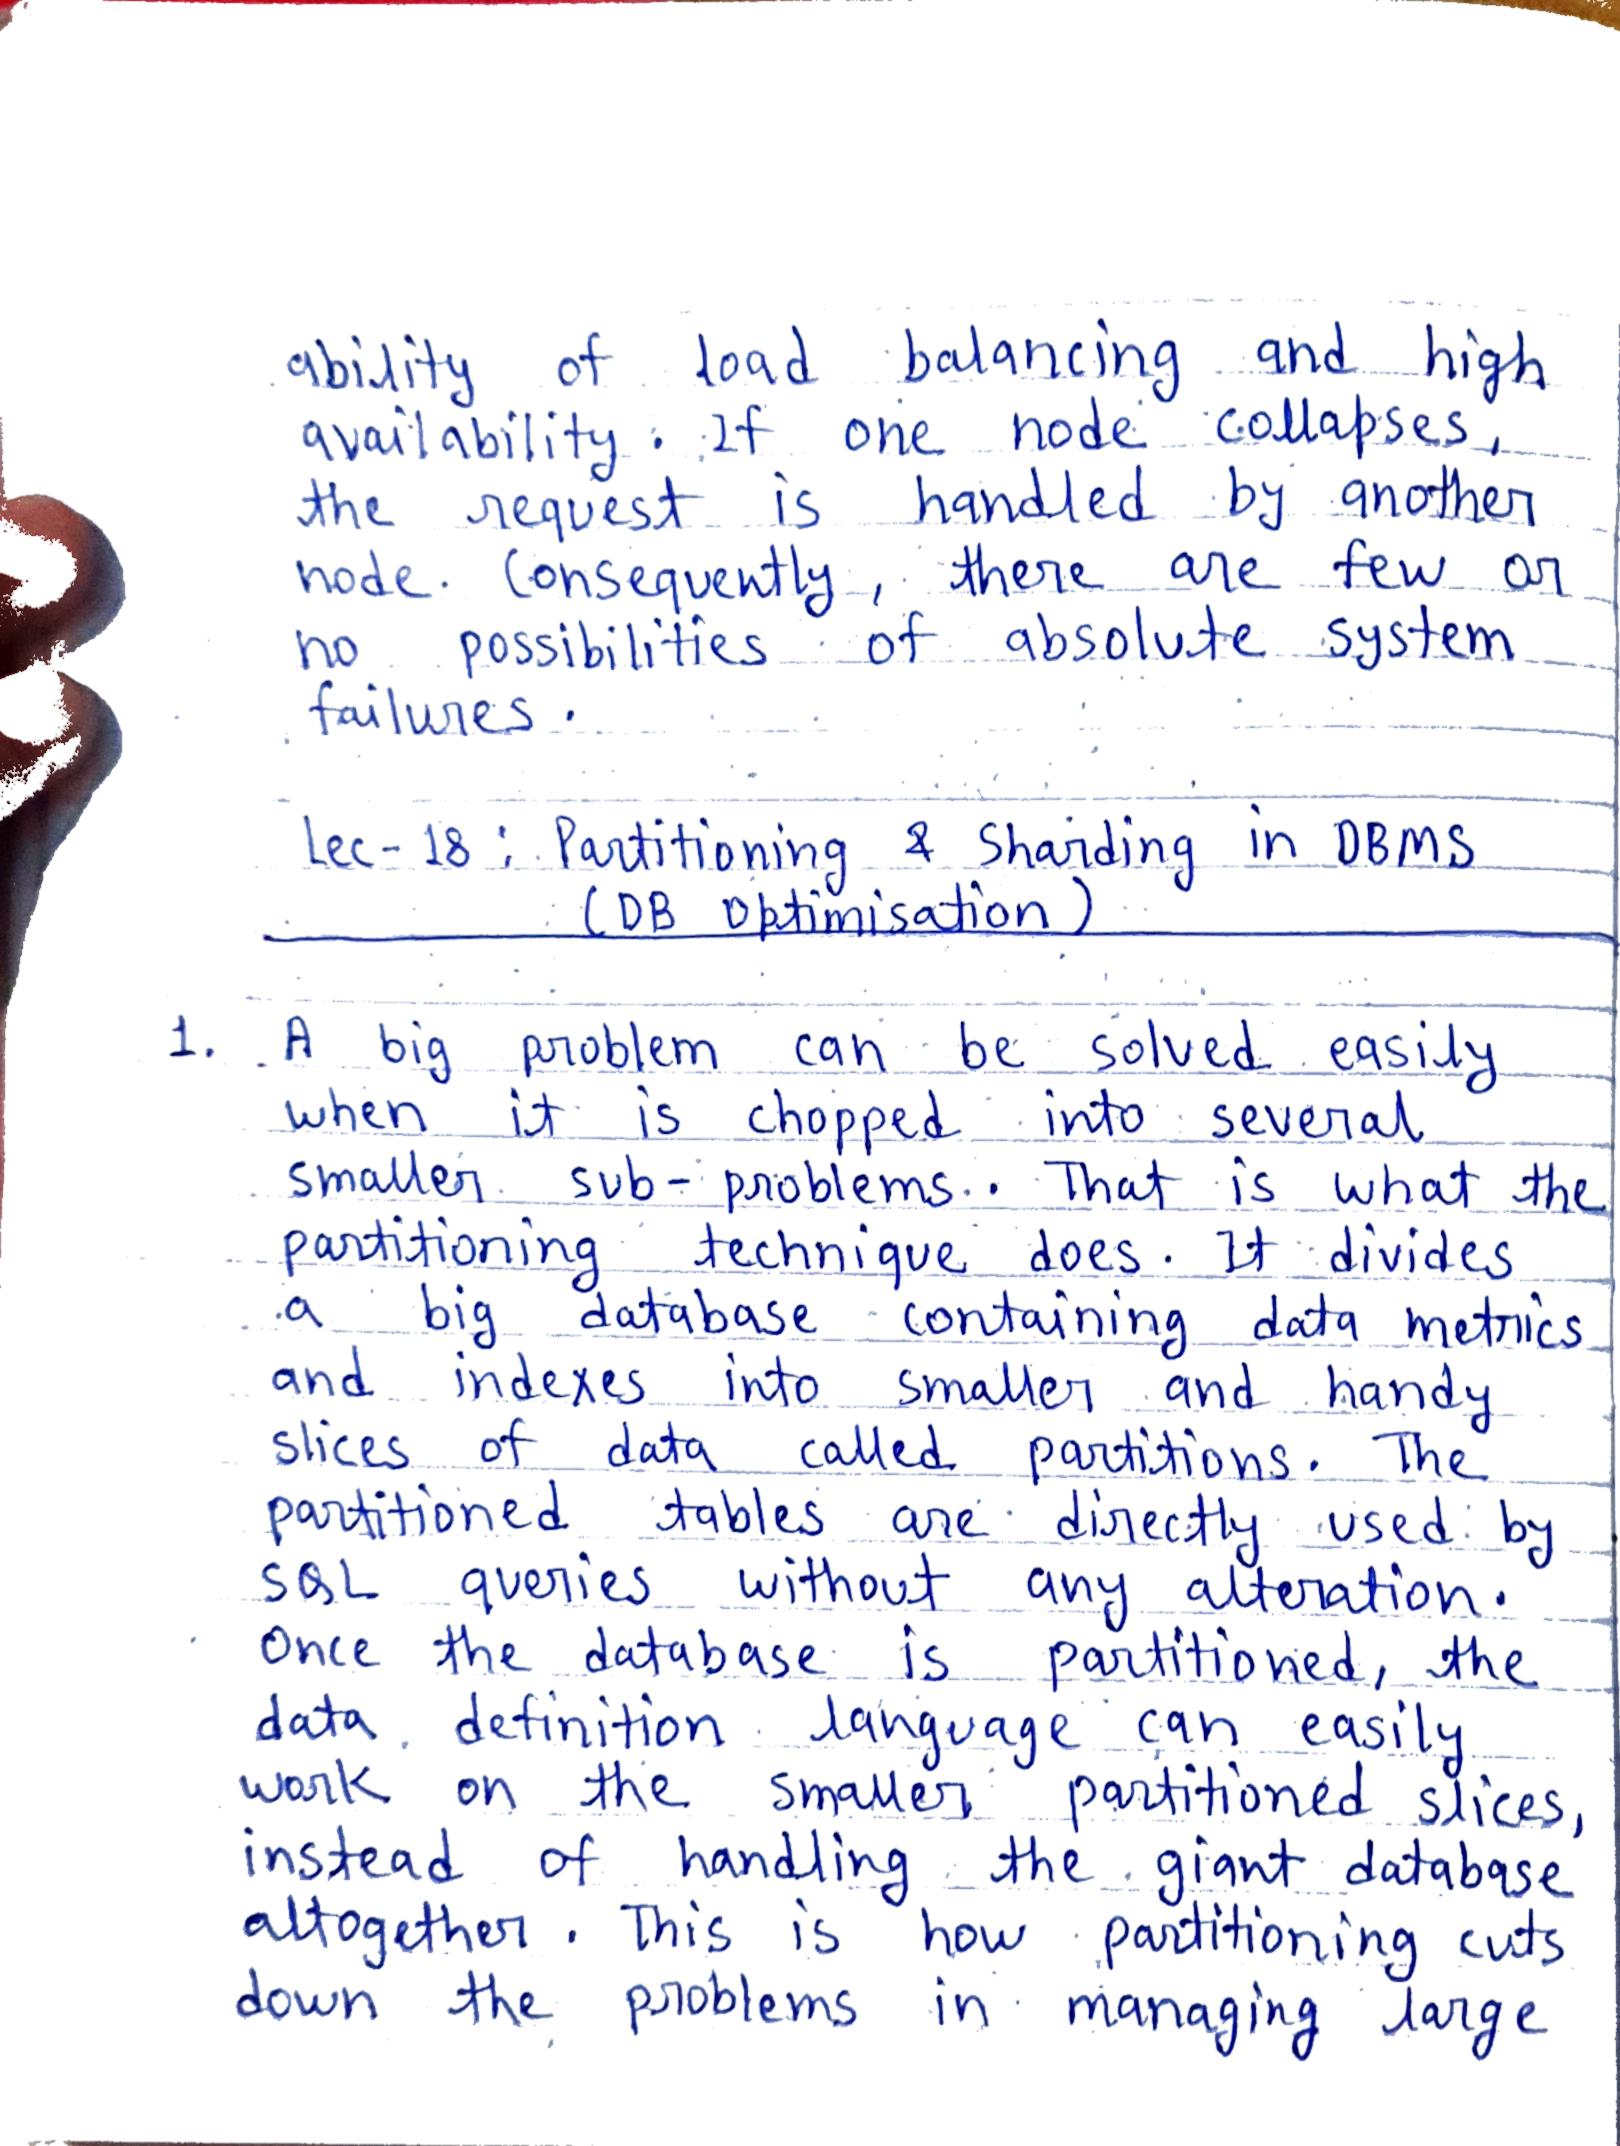 ability of load balancing and high
availability. If one node collapses,
the request is handled by another
node. Consequently, there are few or
no possibilities of absolute system
failures.
Lec-18: Partitioning & Sharding in DBMS
(DB Optimisation)
1. A big problem can be solved easily
when it is chopped into several
smaller sub-problems. That is what the
partitioning technique does. It divides
a big database containing data metrics
and indexes into smaller and handy
slices of data called partitions. The
partitioned tables are directly used by
SQL queries without any alteration.
Once the database is partitioned, the
data definition language can easily
work on the smaller partitioned slices,
instead of handling the giant database
altogether. This is how partitioning cuts
down the problems in managing large